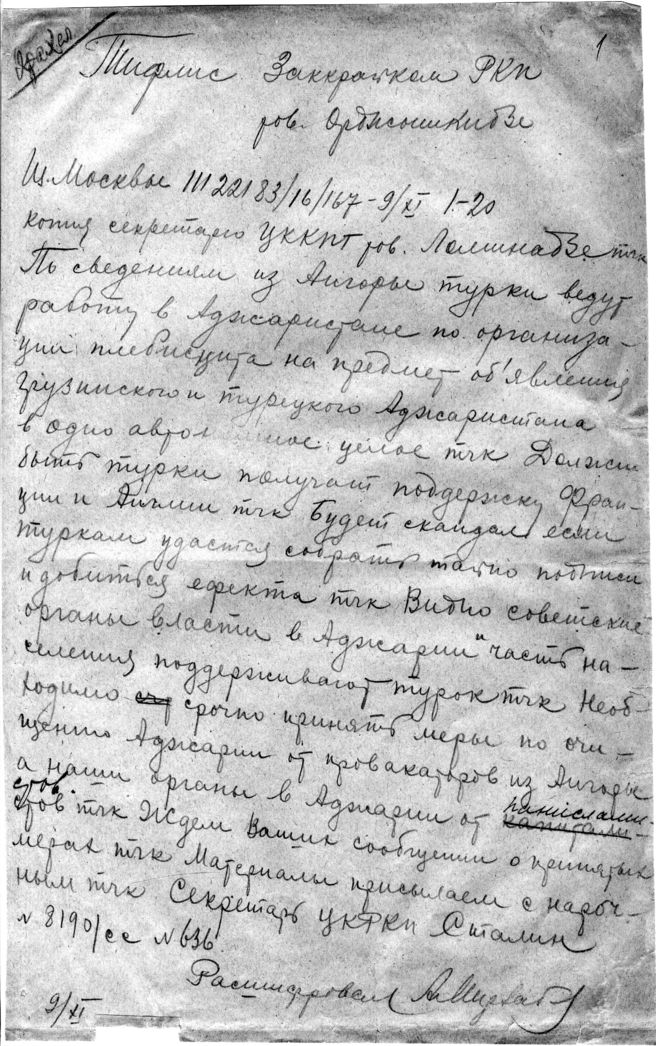 1
Тифлис Заккрайком РКП
тов. Орджоникидзе
Ш. Москвы 11122183/16/167-9/XI 1-20
копия секретарю ЦККПГ тов. Ломинадзе тчк
По сведениям из Ангоры турки ведут
работу в Аджаристане по организа-
ции плебисцита на предмет об'явления
грузинского и турецкого Аджаристана
в одно автономное целое тчк Должно
быть турки получают поддержку Фран-
ции и Англии тчк Будет скандал если
туркам удастся собрать тайно подписи
и добиться ефекта тчк Видно советские
органы власти в Аджарии и часть на-
селения поддерживают турок тчк Необ-
ходимо срочно принять меры по очи-
щению Аджарии от провакаторов из Ангоры
а наши органы в Аджарии от капитали- панислами-
стов тчк Ждем Ваших сообщении о принятых стов.
мерах тчк Материалы присылаем с нароч-
ным тчк Секретарь ЦКРКП Сталин
N 8190/сс N 636
Расшифровал
9/XI